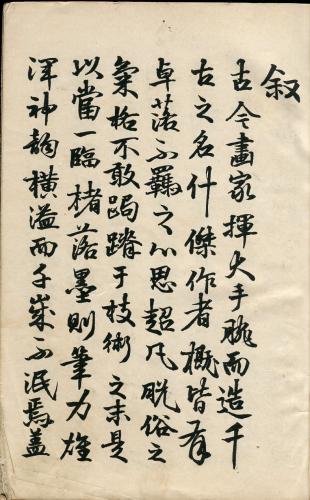 叙
古今畫家揮大手腕而造千
古之名什傑作者概皆有
卓落不羈之心思超凡脱俗之
氣格不敢跼蹐于技術之末是
以當一臨楮落墨則筆力雄
渾神韵横溢而千歳不泯焉蓋